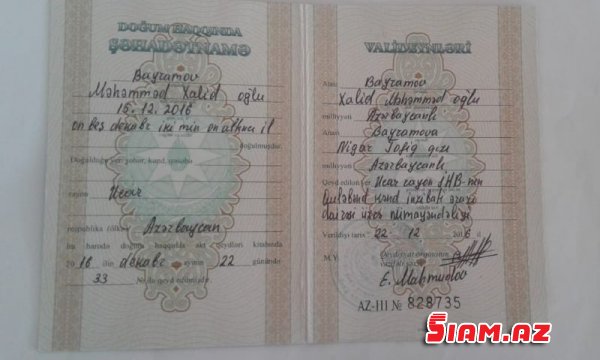 DOĞUM HAQQINDA
ŞƏHADƏTNAMƏ
Bayramov
Məhəmməd Xalid oğlu
15.12.2016
on beş dekabr iki min on altıncı il
doğulmuşdur.
Doğulduğu yer: şəhər, kənd, qəsəbə
rayon Ucar
respublika (ölkə) Azərbaycan
bu barədə doğum haqqında akt qeydləri kitabında
20 16 ilin dekabr ayının 22 günündə
33 №-də qeyd edilmişdir.
VALİDEYNLƏRİ
Atası Bayramov
Xalid Məhəmməd oğlu
milliyyəti Azərbaycanlı
Anası Bayramova
Nigar Tofiq qızı
milliyyəti Azərbaycanlı
Qeyd edilən yer Ucar rayon İHB-nin
kənd inzibati ərazi
dairəsi üzrə nümayəndəliyi
Verildiyi tarix 22 12 2016 il
M.Y.
E. Mahmudov
AZ-III № 828735
SIAM.AZ